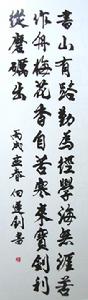 書山有路勤為徑學海無涯苦
作舟梅花香自苦寒來寶劍利
從磨礪出
丙戌
書